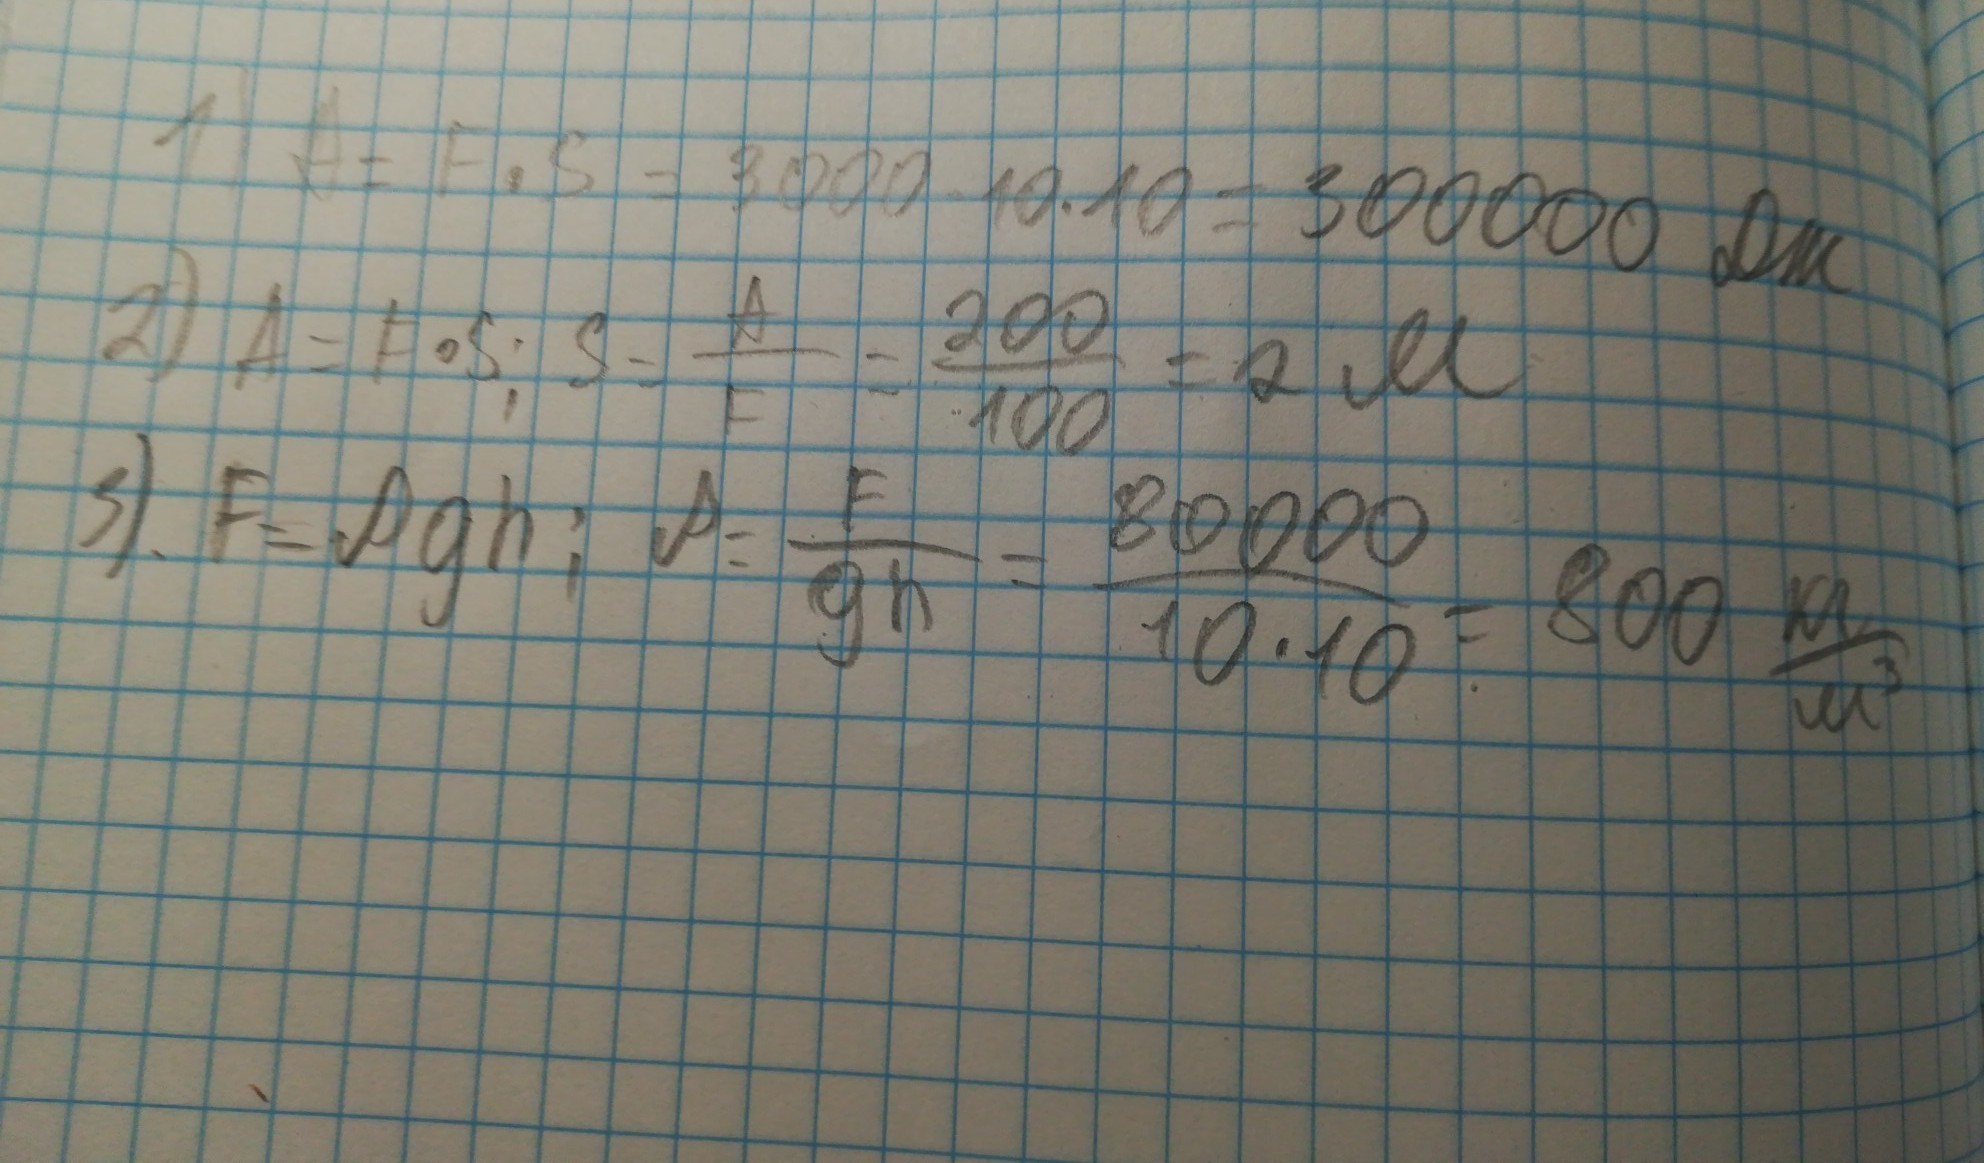 1) A = F · S = 3000 · 10 · 10 = 300000 Дж
2) A = F · S; S = A/F = 200/100 = 2 м
3). F = ρgh; ρ = F/gh = 80000/10 · 10 = 800 кг/м³